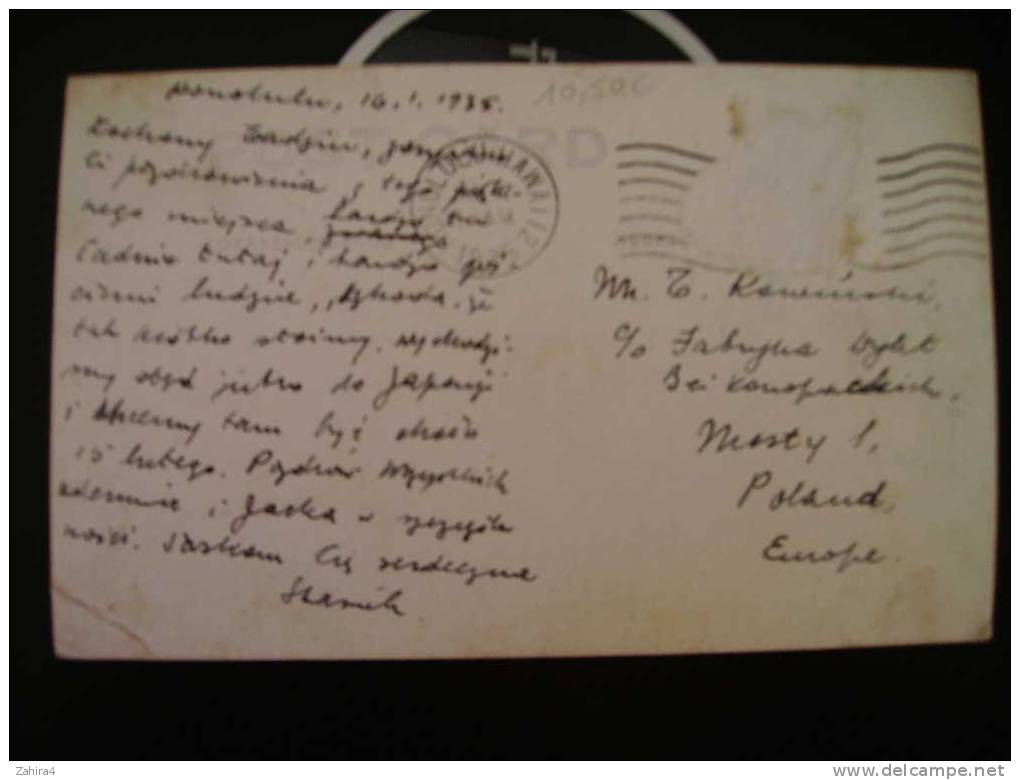 Honolulu, 16.1.1935.
10,50€
Kochany Tadziu, zasyłam
Ci pozdrowienia z tego pięk-
nego miejsca, bardzo tu
ładnie tutaj i bardzo goś-
cinni ludzie, szkoda że
tak krótko stoimy. wychodzi-
my stąd jutro do Japonji
i chcemy tam być około
15 lutego. Pozdrów wszystkich
odemnie i Jacka w szczegól-
ności. Ściskam Cię serdecznie
Stasiek
CARD
HAWAII
Mr. T. Kamiński,
c/o Fabryka Dykt
Bci Konopackich,
Mosty 1,
Poland,
Europe.
Zahira4
delcampe.net